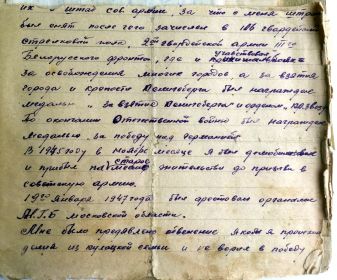 их – штаб сов. армии, за что с меня штраф
был снят после чего зачислен в 186 гвардейский
стрелковый полк, 2ой гвардейской армии IIIго
Белорусского фронта, где и участвовал
за освобождения многих городов, а за взятия
города и крепости Кенигсберга был награжден
медалью „за взятие Кенигсберга и орденом
По окончанию Отечественной войны был награжден
медалью „за победу над германией
В 1945 году в ноябре месяце я был демобилизован
и прибыл на старое место жительства до призыва в
советскую армию.
19го Января 1947 года был арестован органами
М.Г.Б Московской области.
Мне было предъявлено обвенение я якобы происхо
дил из кулацкой семьи и не верил в победу